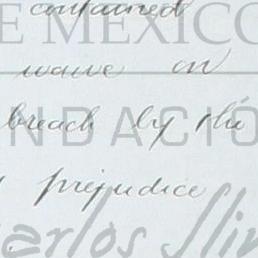 contained
E MEXICO
waive on
NDACIÓ
breach by the
prejudice
arlos Slim